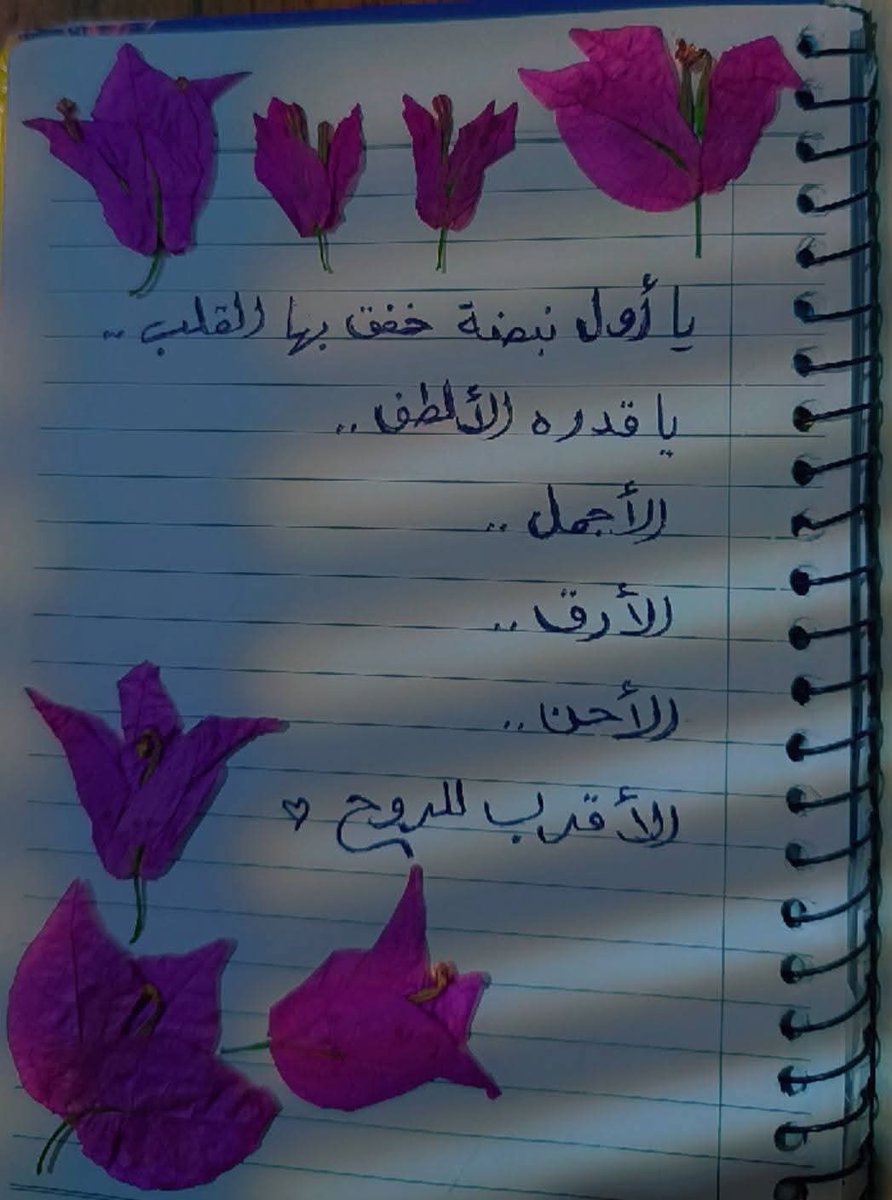 يا أول نبضة خفق بها القلب ..
يا قدره الألطف ..
الأجمل ..
الأرق ..
الأحن ..
الأقرب للروح ♡